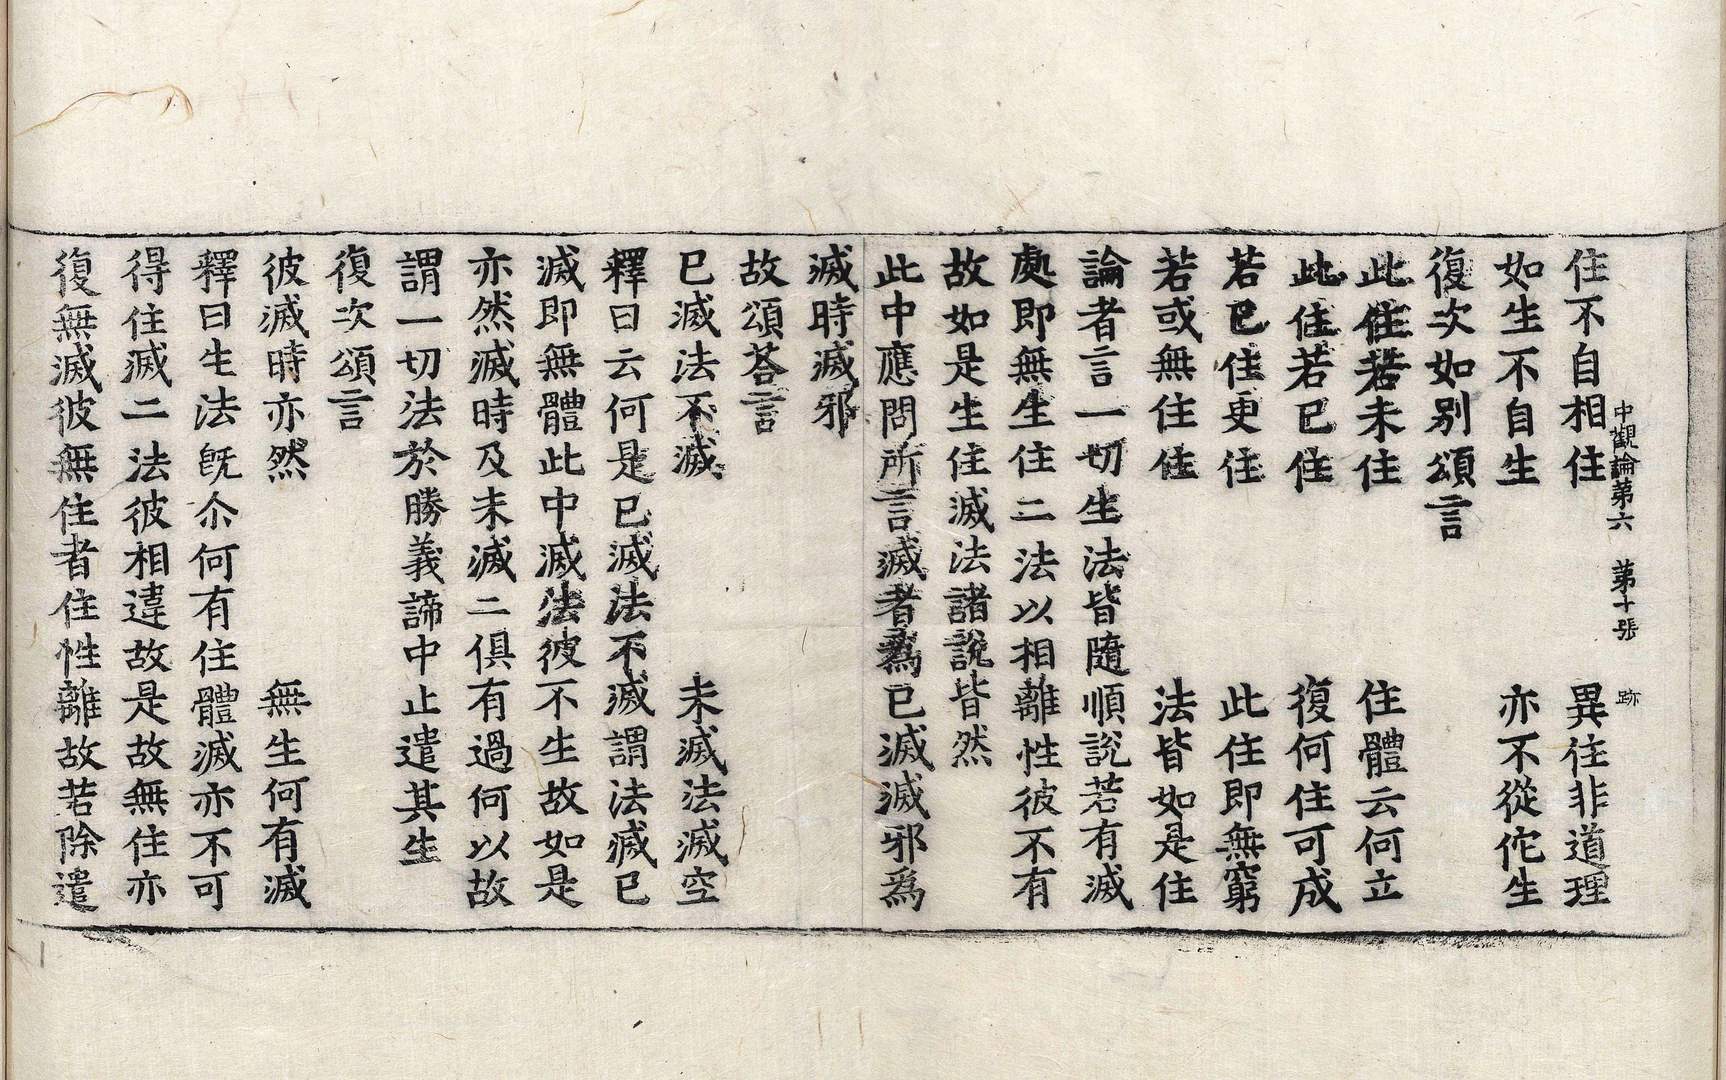 中觀論第六　第十張　跡
住不自相住　異住非道理
如生不自生　亦不從佗生
復次如别頌言
此住若未住　住體云何立
此住若已住　復何住可成
若已住更住　此住即無窮
若或無住住　法皆如是住
論者言一切生法皆隨順說若有滅
處即無生住二法以相離性彼不有
故如是生住滅法諸說皆然
此中應問所言滅者爲已滅滅邪爲
滅時滅邪
故頌荅言
已滅法不滅　未滅法滅空
釋曰云何是已滅法不滅謂法滅已
滅即無體此中滅法彼不生故如是
亦然滅時及未滅二俱有過何以故
謂一切法於勝義諦中止遣其生
復次頌言
彼滅時亦然　無生何有滅
釋曰生法旣尒何有住體滅亦不可
得住滅二法彼相違故是故無住亦
復無滅彼無住者住性離故若除遣